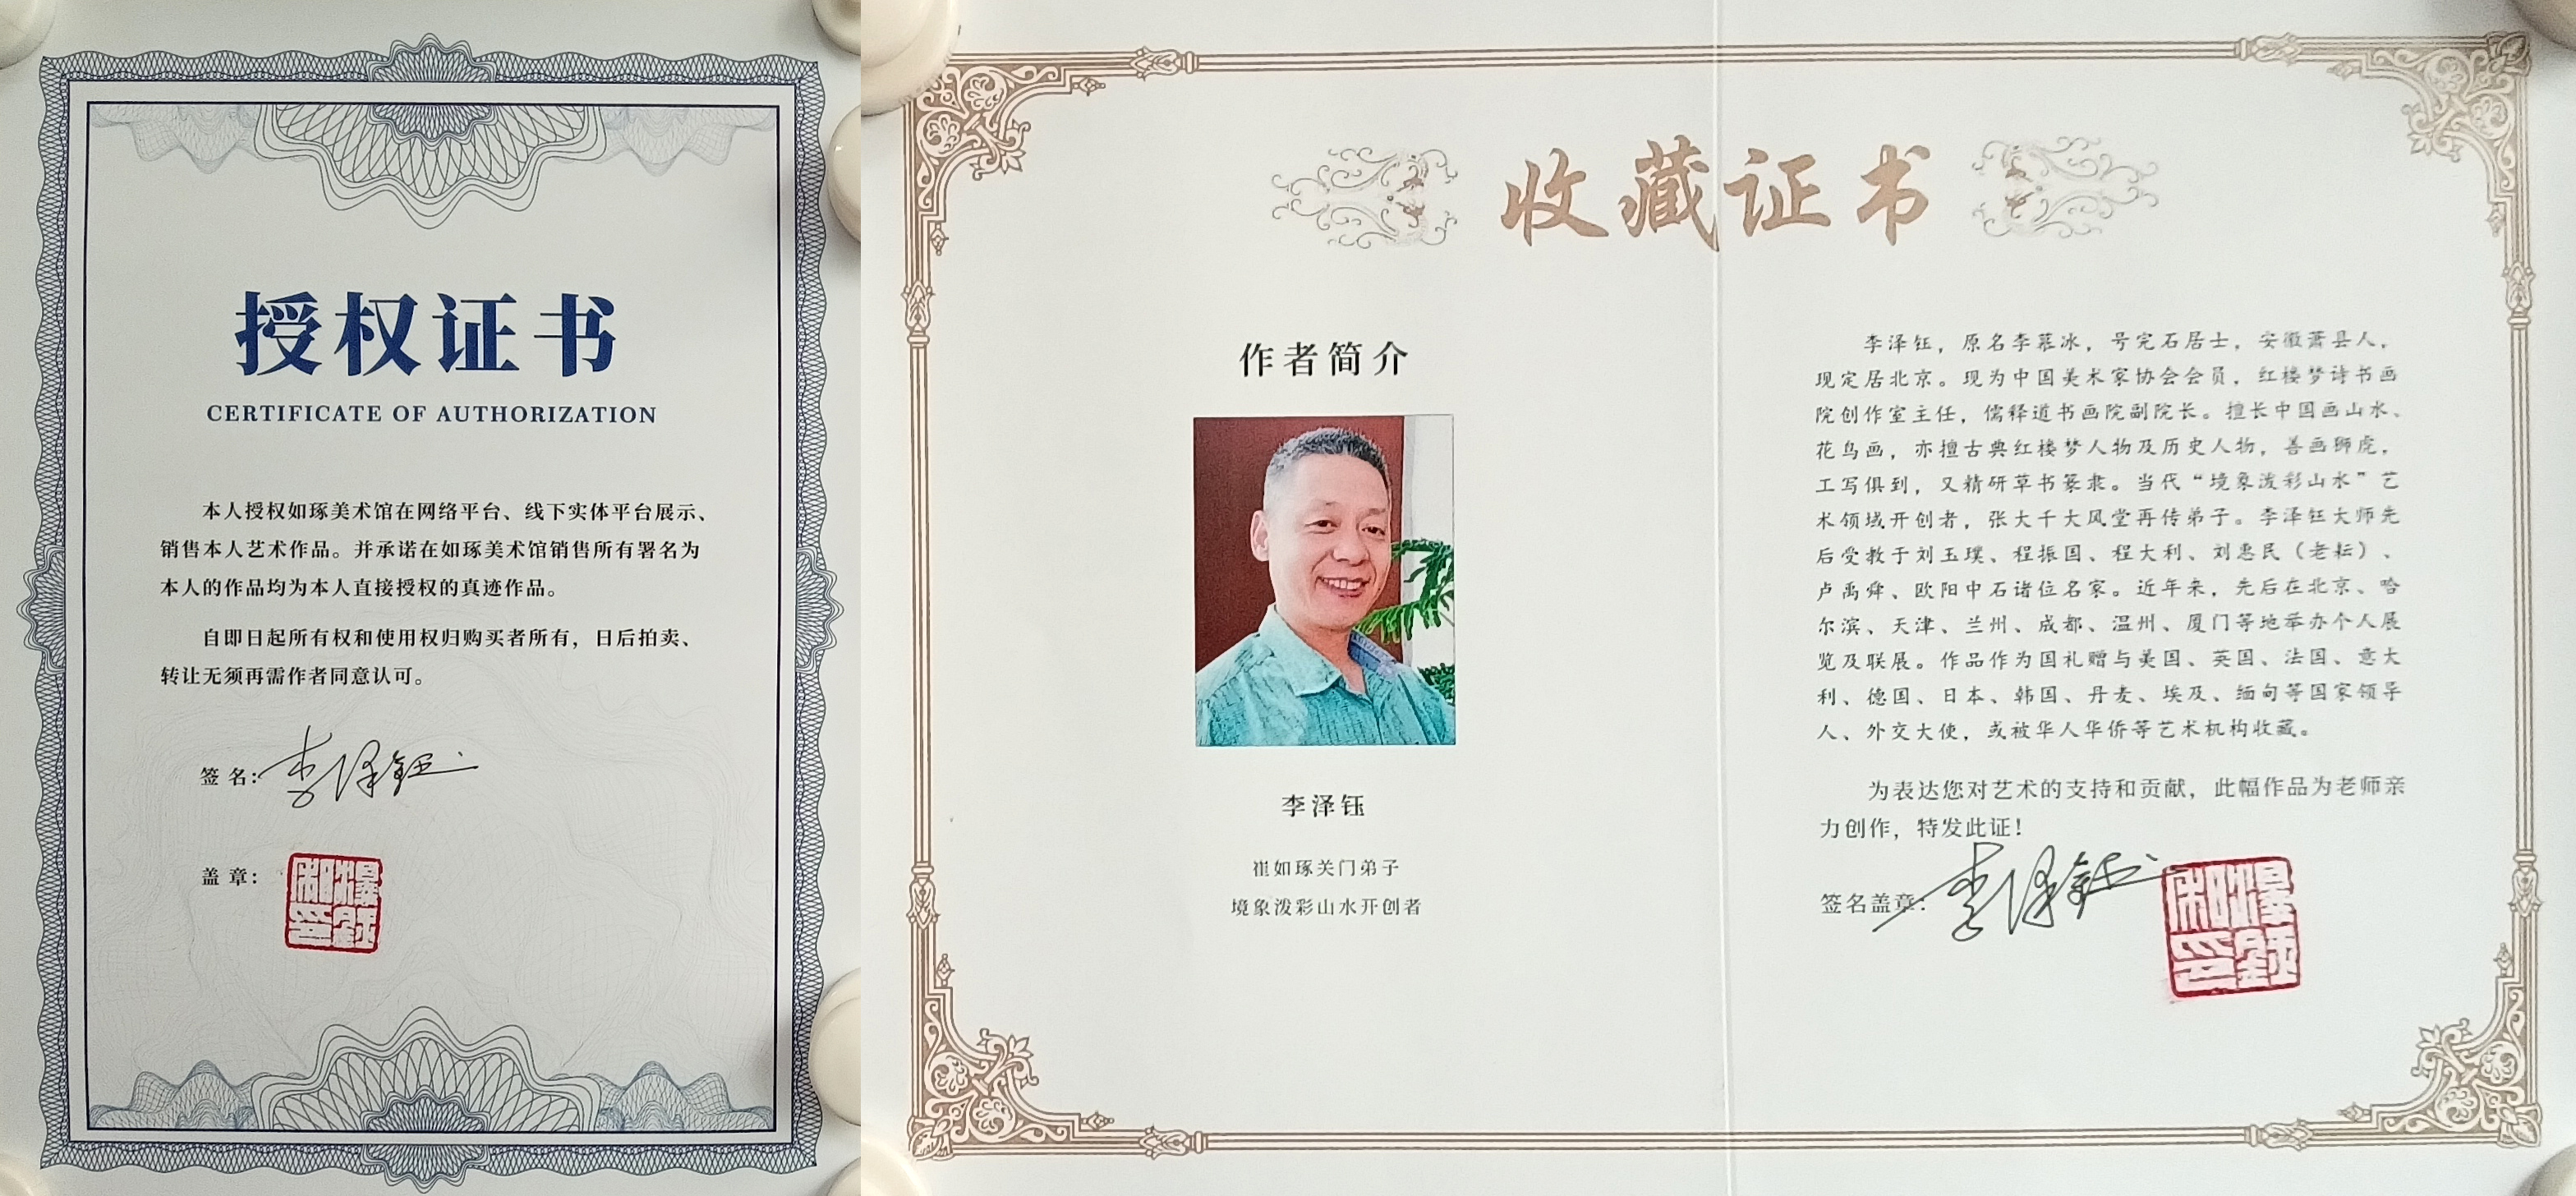 授权证书
CERTIFICATE OF AUTHORIZATION
本人授权如琢美术馆在网络平台、线下实体平台展示、
销售本人艺术作品。并承诺在如琢美术馆销售所有署名为
本人的作品均为本人直接授权的真迹作品。
自即日起所有权和使用权归购买者所有，日后拍卖、
转让无须再需作者同意认可。
签 名：李泽钰
盖 章：
收藏证书
作者简介
李泽钰
崔如琢关门弟子
境象泼彩山水开创者
李泽钰，原名李慕冰，号完石居士，安徽萧县人，
现定居北京。现为中国美术家协会会员，红楼梦诗书画
院创作室主任，儒释道书画院副院长。擅长中国画山水、
花鸟画，亦擅古典红楼梦人物及历史人物，善画狮虎，
工写俱到，又精研草书篆隶。当代“境象泼彩山水”艺
术领域开创者，张大千大风堂再传弟子。李泽钰大师先
后受教于刘玉璞、程振国、程大利、刘惠民（老耘）、
卢禹舜、欧阳中石诸位名家。近年来，先后在北京、哈
尔滨、天津、兰州、成都、温州、厦门等地举办个人展
览及联展。作品作为国礼赠与美国、英国、法国、意大
利、德国、日本、韩国、丹麦、埃及、缅甸等国家领导
人、外交大使，或被华人华侨等艺术机构收藏。
为表达您对艺术的支持和贡献，此幅作品为老师亲
力创作，特发此证！
签名盖章：李泽钰